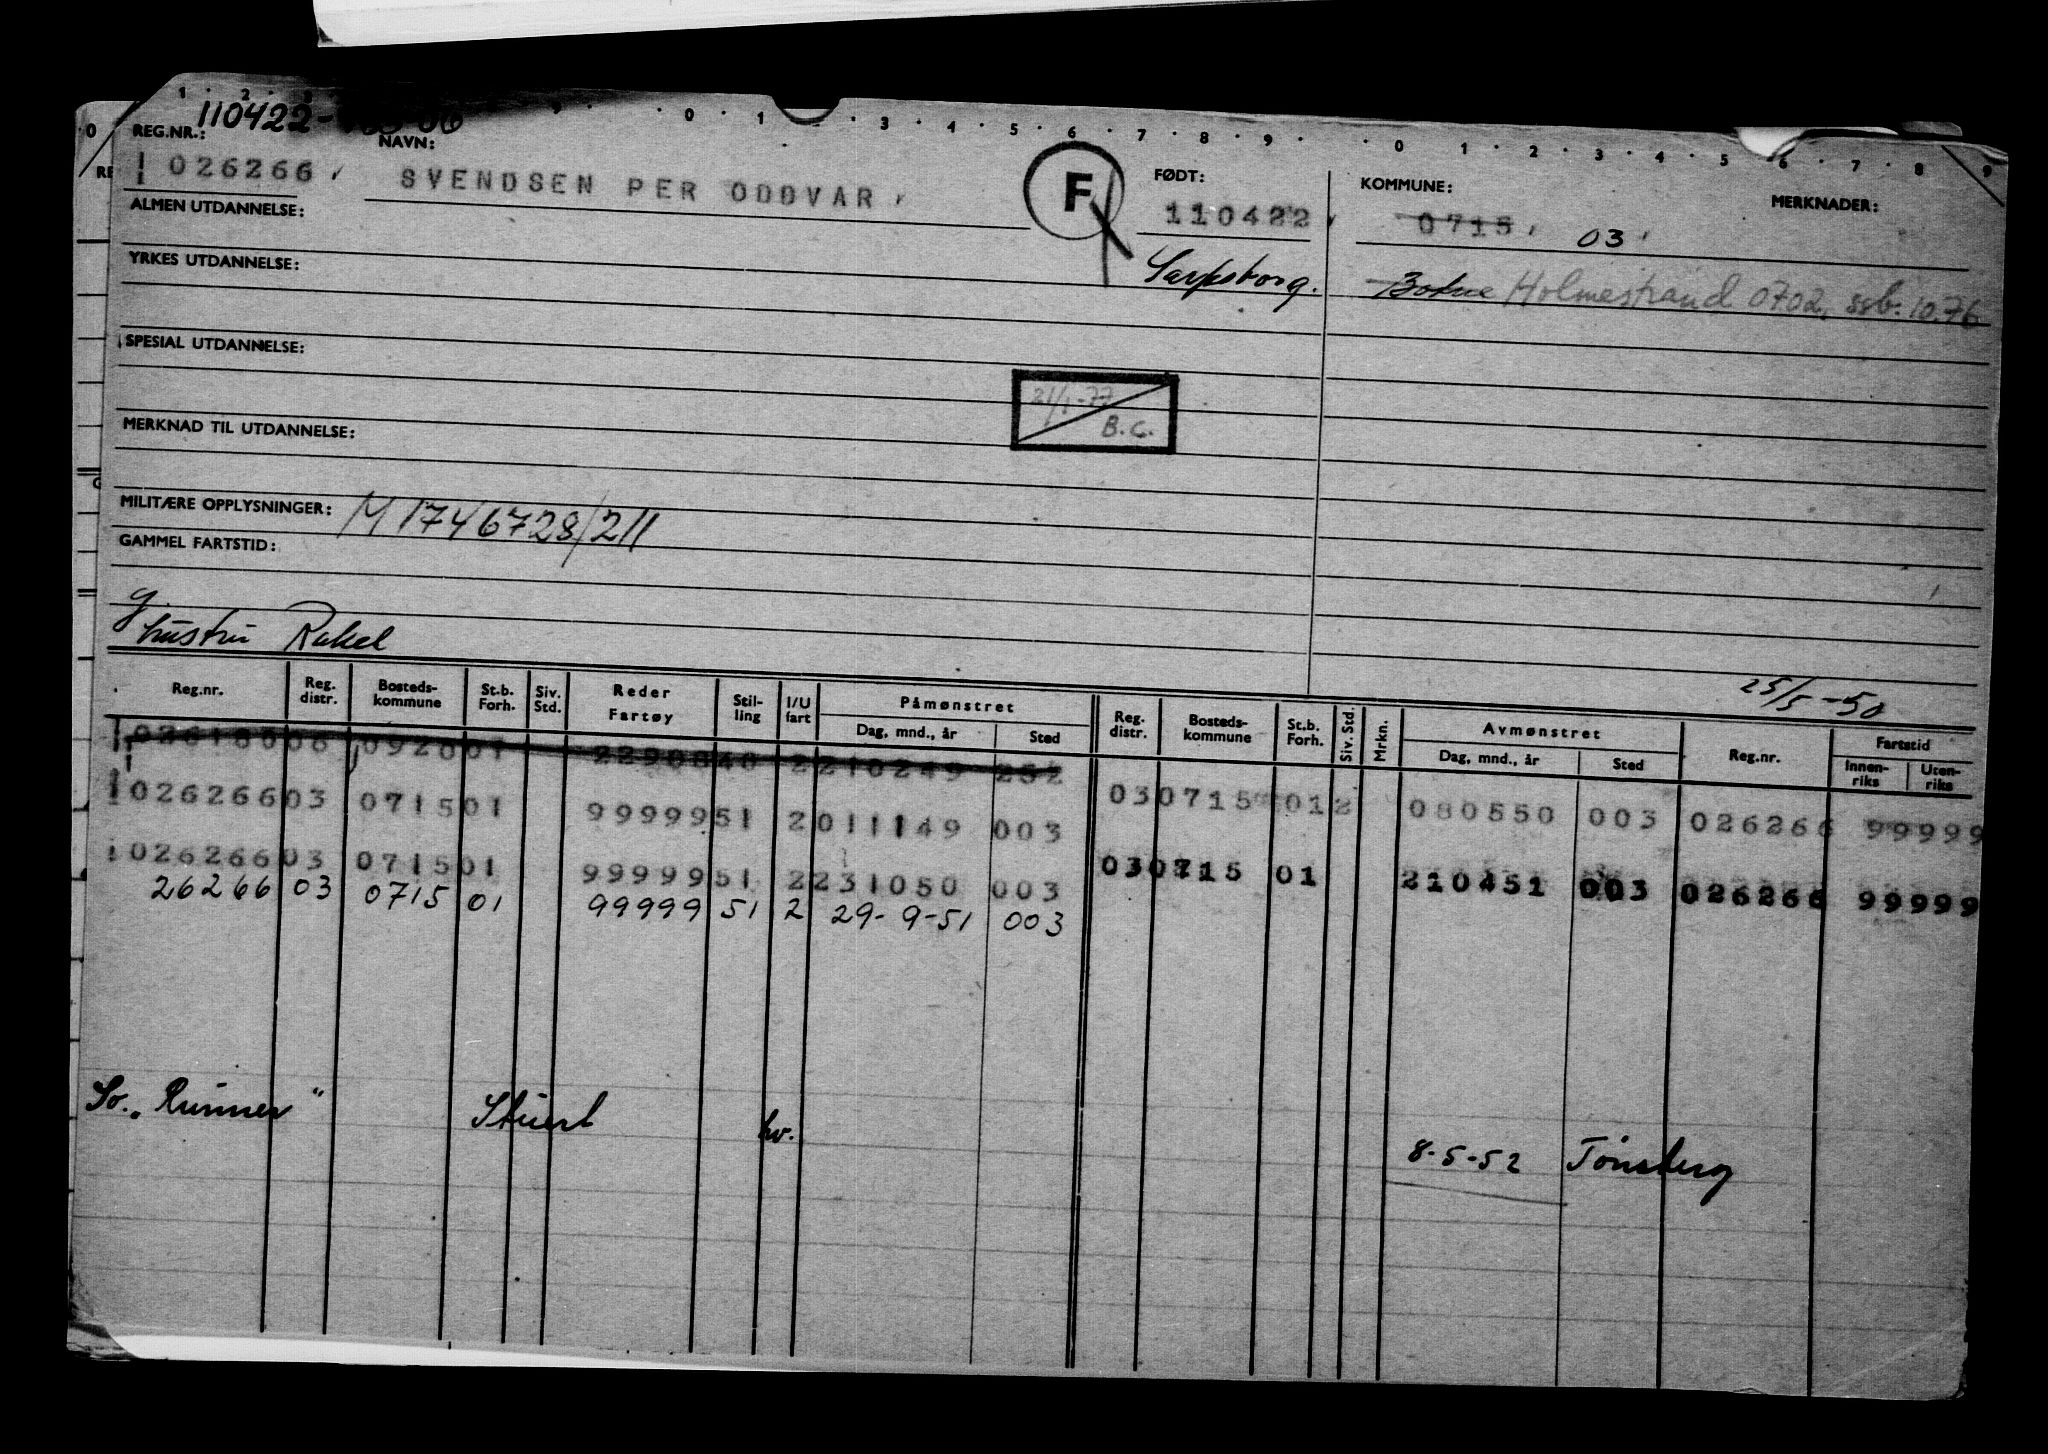 1 2 9 0 1 3 4 5 6 7 8 9 0 1 2 3 4 5 6 7 8 9
110422-
REG.NR.: NAVN: FØDT: KOMMUNE: MERKNADER:
026266 SVENDSEN PER ODDVAR F 110422 0715 03
ALMEN UTDANNELSE:
Sarpsborg. Botne Holmestrand 0702, ssb. 10.76
YRKES UTDANNELSE:
SPESIAL UTDANNELSE:
21/1-77
B.C.
MERKNAD TIL UTDANNELSE:
MILITÆRE OPPLYSNINGER: M 1746728/211
GAMMEL FARTSTID:
g.
hustru Rakel
25/5-50
Reg.nr. Reg. distr. Bosteds-kommune St.b. Forh. Siv. Std. Reder Fartøy Stil-ling I/U fart Påmønstret Dag, mnd., år Sted Reg. distr. Bosteds-kommune St.b. Forh. Siv. Std. Mrkn. Avmønstret Dag, mnd., år Sted Reg.nr. Fartstid Innen-riks Uten-riks
026266 03 0715 01 99999 51 2 011149 003 03 0715 01 2 080550 003 026266 99999
026266 03 0715 01 99999 51 2 231050 003 03 0715 01 210451 003 026266 99999
26266 03 0715 01 99999 51 2 29-9-51 003
So. "Runner" Stuert hv. 8-5-52 Tønsberg